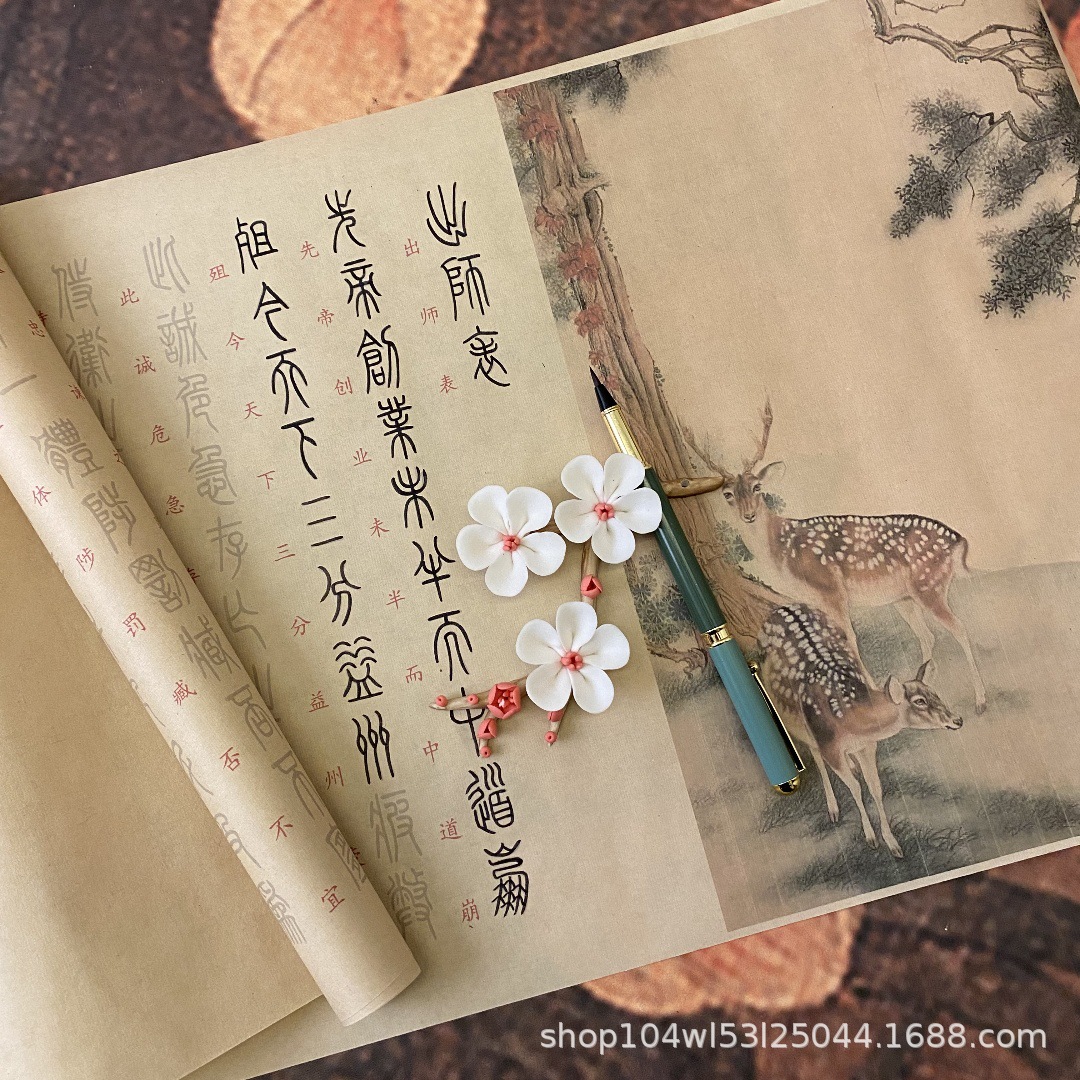 出師表
出师表
先帝創業未半而中道崩
先帝创业未半而中道崩
殂今天下三分益州疲敝
殂今天下三分益州
此誠危急存
此诚危急
侍衛
一體陟罰臧
体陟罚臧否不宜
shop104wl53l25044.1688.com